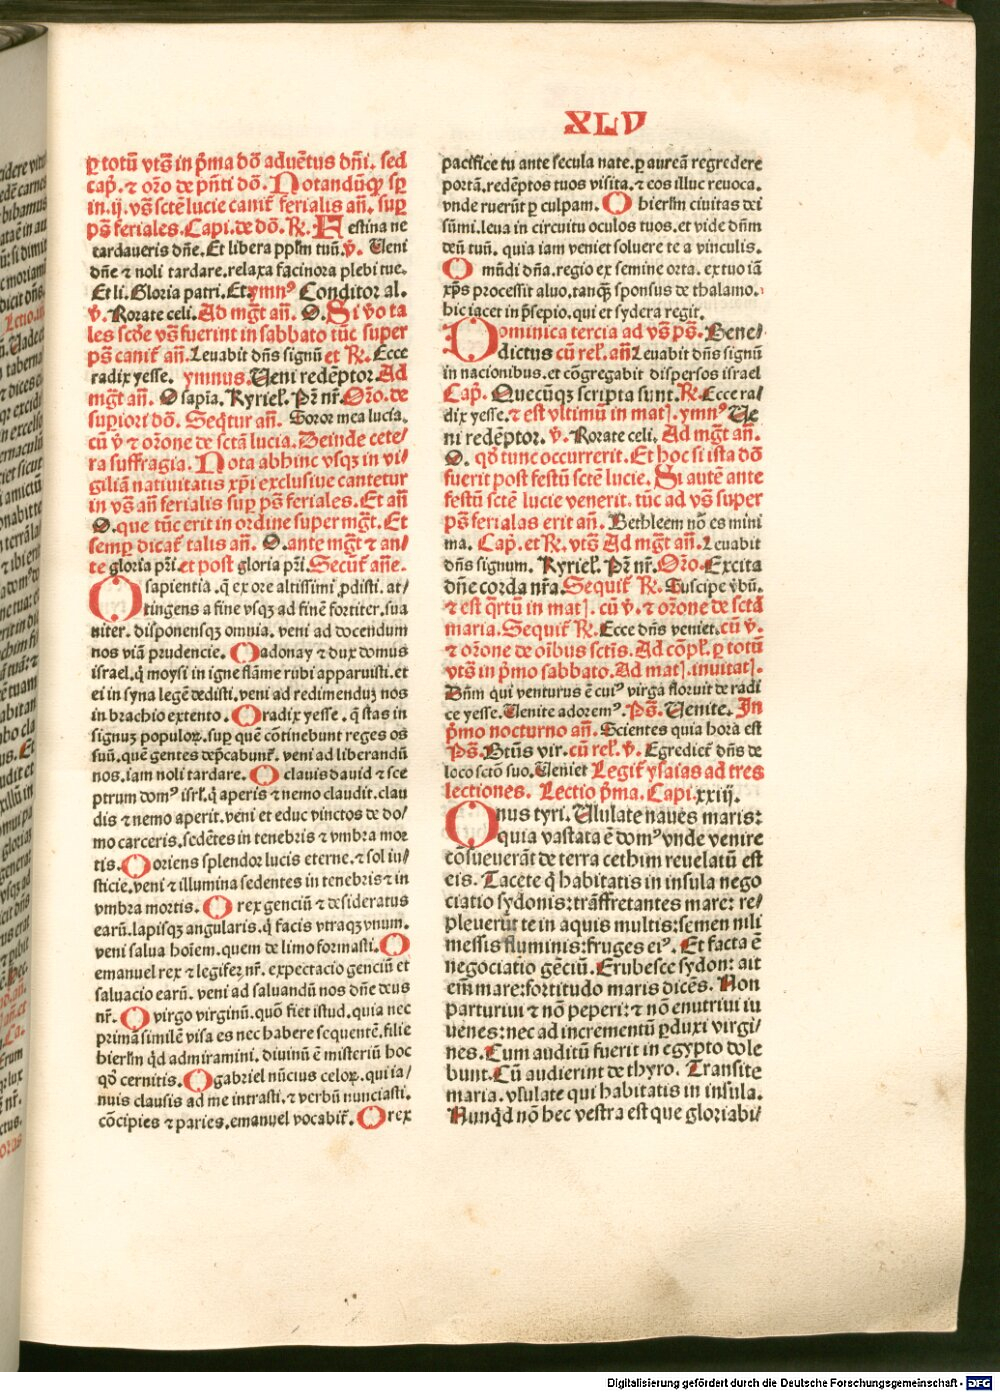 XLV
ꝑ totū vtꝫ in p̄ma dō aduētus dn̄i. sed
cap̄. ⁊ oro de pn̄ti dō. Notandūqꝫ sꝑ
in .ij. vꝫ scte lucie canit̄ ferialis an̄. suꝑ
ps̄ feriales. Capi. de dō. ꝶ. Festina ne
tardaueris dn̄e. Et libera pplm̄ tuū. v̄. Ueni
dn̄e ⁊ noli tardare. relaxa facinora plebi tue.
Et li. Gloria patri. Et. ymnꝰ Conditor al.
v̄. Rorate celi. Ad mgt̄ an̄. O. Si v̄o ta
les scd̄e vꝫ fuerint in sabbato tūc super
ps̄ canit̄ an̄. Leuabit dn̄s signū et ꝶ. Ecce
radix yesse. ymnus. Ueni redēptor. Ad
mgt̄ an̄. O sapia. Kyriel. Pr̄ nr̄. Oro. de
suꝑiori dō. Seqͥtur an̄. Soror mea lucia.
cū v̄ ⁊ orone de sctā lucia. Deinde cete/
ra suffragia. Nota abhinc vsqꝫ in vi/
giliā natiuitatis xp̄i exclusiue cantetur
in vꝫ an̄ ferialis suꝑ ps̄ feriales. Et an̄
O. que tūc erit in ordine super mgt̄. Et
semꝑ dicat̄ talis an̄. O. ante mgt̄ ⁊ an/
te gloria pr̄i. et post gloria pr̄i. Secūt̄ an̄e.
O sapientia. q̄ ex ore altissimi ꝓdisti. at/
tingens a fine vsqꝫ ad finē fortiter. sua
uiter. disponensqꝫ omnia. veni ad docendum
nos viā prudencie. O adonay ⁊ dux domus
israel. qͥ moysi in igne flāme rubi apparuisti. et
ei in syna legē dedisti. veni ad redimenduꝫ nos
in brachio extento. O radix yesse. qͥ stas in
signuꝫ populoꝝ. sup quē cōtinebunt reges os
suū. quē gentes dep̄cabunt̄. veni ad liberandū
nos. iam noli tardare. O clauis dauid ⁊ sce
ptrum domꝰ isrl̄. qͥ aperis ⁊ nemo claudit. clau
dis ⁊ nemo aperit. veni et educ vinctos de do/
mo carceris. sedētes in tenebris ⁊ vmbra mor
tis. O oriens splendor lucis eterne. ⁊ sol iu/
sticie. veni ⁊ illumina sedentes in tenebris ⁊ in
vmbra mortis. O rex genciū ⁊ desideratus
earū. lapisqꝫ angularis. qͥ facis vtraqꝫ vnum.
veni salua hoiem̄. quem de limo formasti. O
emanuel rex ⁊ legifeꝝ nr̄. expectacio genciū et
saluacio earū. veni ad saluandū nos dn̄e deus
nr̄. O virgo virginū. quō fiet istud. quia nec
primā similē visa es nec habere sequentē. filie
hierlm̄ qͥd admiramini. diuinū ē misteriū hoc
qō cernitis. O gabriel nūcius celoꝝ. qui ia/
nuis clausis ad me intrasti. ⁊ verbū nunciasti.
cōcipies ⁊ paries. emanuel vocabit̄. O rex
pacifice tu ante secula nate. ꝑ aureā regredere
portā. redēptos tuos visita. ⁊ eos illuc reuoca.
vnde ruerūt ꝑ culpam. O hierlm̄ ciuitas dei
sūmi. leua in circuitu oculos tuos. et vide dn̄m
deū tuū. quia iam veniet soluere te a vinculis.
O mūdi dn̄a. regio ex semine orta. ex tuo iā
xp̄s processit aluo. tanqͣ sponsus de thalamo.
hic iacet in p̄sepio. qui et sydera regit.
Dominica tercia ad vꝫ ps̄. Bene/
dictus cū rel̄. an̄ Leuabit dn̄s signū
in nacionibus. et cōgregabit dispersos israel
Cap̄. Quecūqꝫ scripta sunt. ꝶ. Ecce ra/
dix yesse. ⁊ est vltimū in matꝭ. ymnꝰ Ue
ni redēptor. v̄. Rorate celi. Ad mgt̄ an̄.
O. qō tunc occurrerit. Et hoc si ista dō
fuerit post festū scte lucie. Si autē ante
festū scte lucie venerit. tūc ad vꝫ super
ps̄ ferialas erit an̄. Bethleem nō es mini
ma. Cap̄. et ꝶ. vtꝫ Ad mgt̄ an̄. Leuabit
dn̄s signum. Kyriel. Pr̄ nr̄. Oro. Excita
dn̄e corda nr̄a. Sequit̄ ꝶ. Suscipe v̄bū.
⁊ est qͣrtū in matꝭ. cū v̄. ⁊ orone de sctā
maria. Sequit̄ ꝶ. Ecce dn̄s veniet. cū v̄.
⁊ orone de oībus sctīs. Ad cōpl̄. ꝑ totū
vtꝫ in p̄mo sabbato. Ad matꝭ. inuitatꝭ.
Bn̄m qui venturus ē cuiꝰ virga floruit de radi
ce yesse. Uenite adoremꝰ. Ps̄. Uenite. In
p̄mo nocturno an̄. Scientes quia hora est
Ps̄. Btūs vir. cū rel̄. v̄. Egrediet̄ dn̄s de
loco sctō suo. Ueniet Legit̄ ysaias ad tres
lectiones. Lectio p̄ma. Capi. xxiij.
Onus tyri. Ululate naues maris:
quia vastata ē domꝰ vnde venire
cōsueuerāt de terra cethim reuelatū est
eis. Tacete qͥ habitatis in insula nego
ciatio sydonis: trāsfretantes mare: re/
pleuerūt te in aquis multis: semen nili
messis fluminis: fruges eiꝰ. Et facta ē
negociatio gēciū. Erubesce sydon: ait
eni mare: fortitudo maris dicēs. Non
parturiui ⁊ nō peperi: ⁊ nō enutriui iu
uenes: nec ad incrementū ꝑduxi virgi/
nes. Cum auditū fuerit in egypto dole
bunt. Cū audierint de thyro. Transite
maria. vlulate qui habitatis in insula.
Nunqͥd nō hec vestra est que gloriabi/
Digitalisierung gefördert durch die Deutsche Forschungsgemeinschaft - DFG